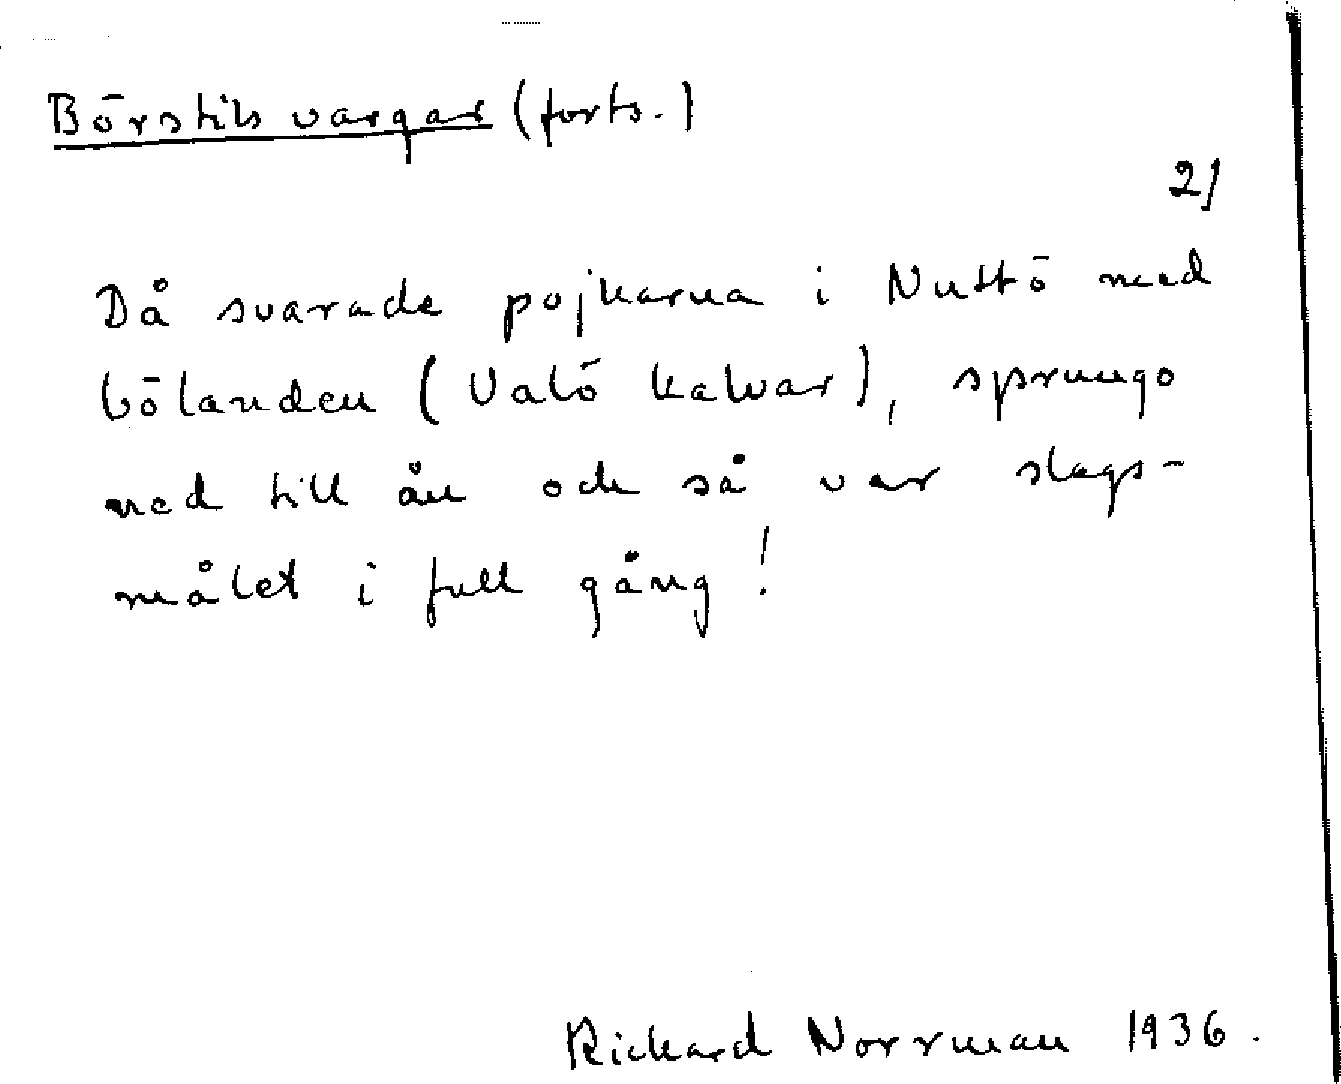 Börstils vargar (forts.)
2)
Då svarade pojkarna i Nuttö med
bölanden (Valö kalvar), sprungo
ned till ån och så var slags-
målet i full gång!
Richard Norrman 1936.